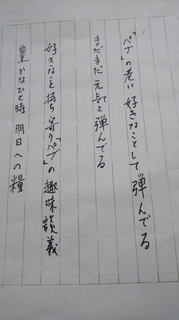 「ペブ」の老い 好きなことして弾んでる
まだまだ元気と弾んでる
好きなこと持ち寄り「ペブ」の趣味談義
豊かなひと時 明日への糧